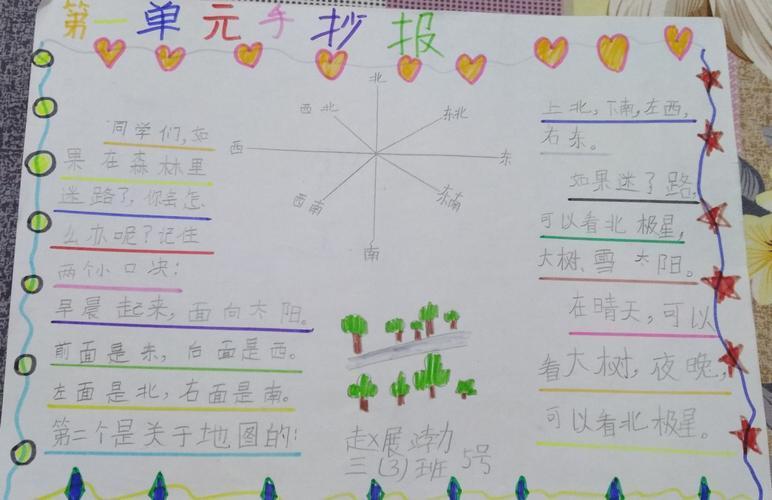 第一单元手抄报
同学们,如
果在森林里
迷路了,你会怎
么办呢?记住
两个小口决:
早晨起来,面向太阳。
前面是东,后面是西。
左面是北,右面是南。
第二个是关于地图的:
北
西北
东北
西
东
西南
东南
南
上北,下南,左西,
右东。
如果迷了路,
可以看北极星,
大树、雪 太阳。
在晴天,可以
看大树,夜晚,
可以看北极星。
赵X展
三(3)班 5号